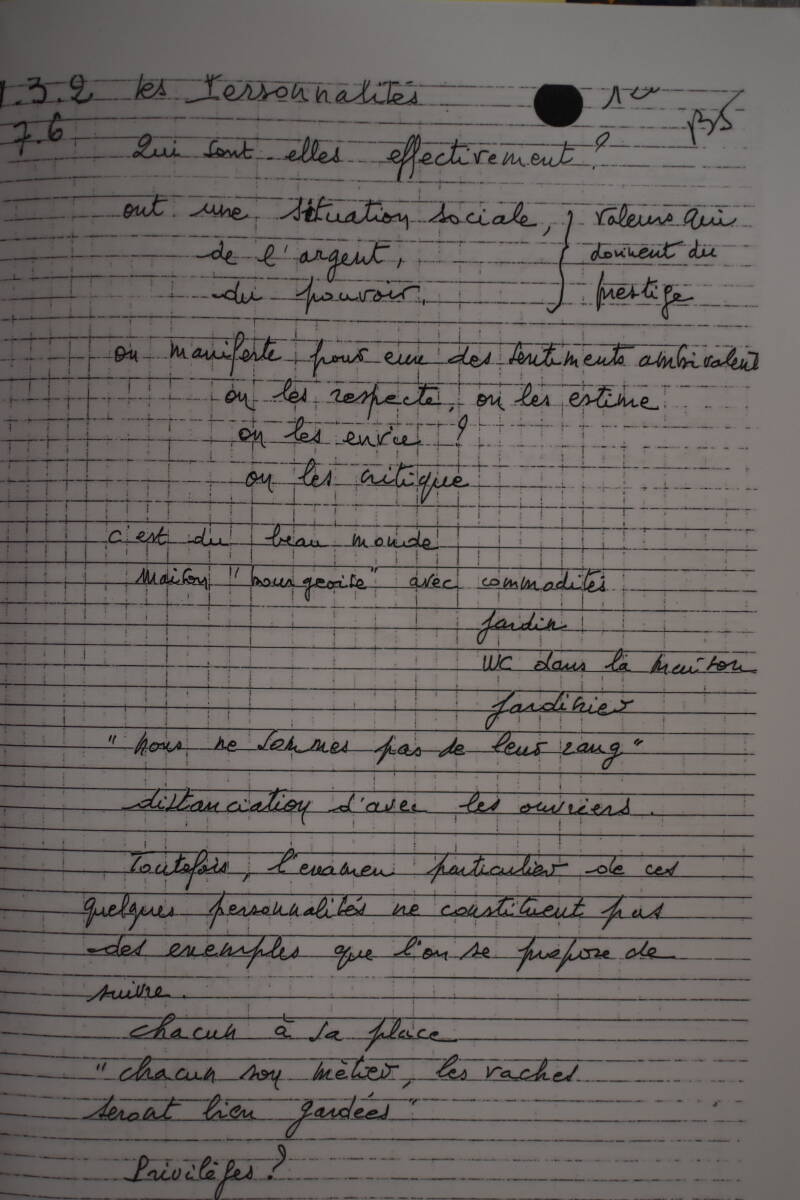 1.3.2 les Personnalités
7.6
Qui sont-elles effectivement?
ont une situation sociale, } valeurs qui
de l'argent, donnent du
du pouvoir. prestige
on manifeste pour eux des sentiments ambivalent
on les respecte, on les estime
on les envie ?
on les critique
c'est du beau monde
maison "bourgeoise" avec commodités
jardin
WC dans la maison
jardinier
"nous ne sommes pas de leur rang"
distanciation d'avec les ouvriers.
Toutefois, l'examen particulier de ces
quelques personnalités ne constituent pas
des exemples que l'on se propose de
suivre.
chacun à sa place
"chacun son métier, les vaches
seront bien gardées"
Privilèges?